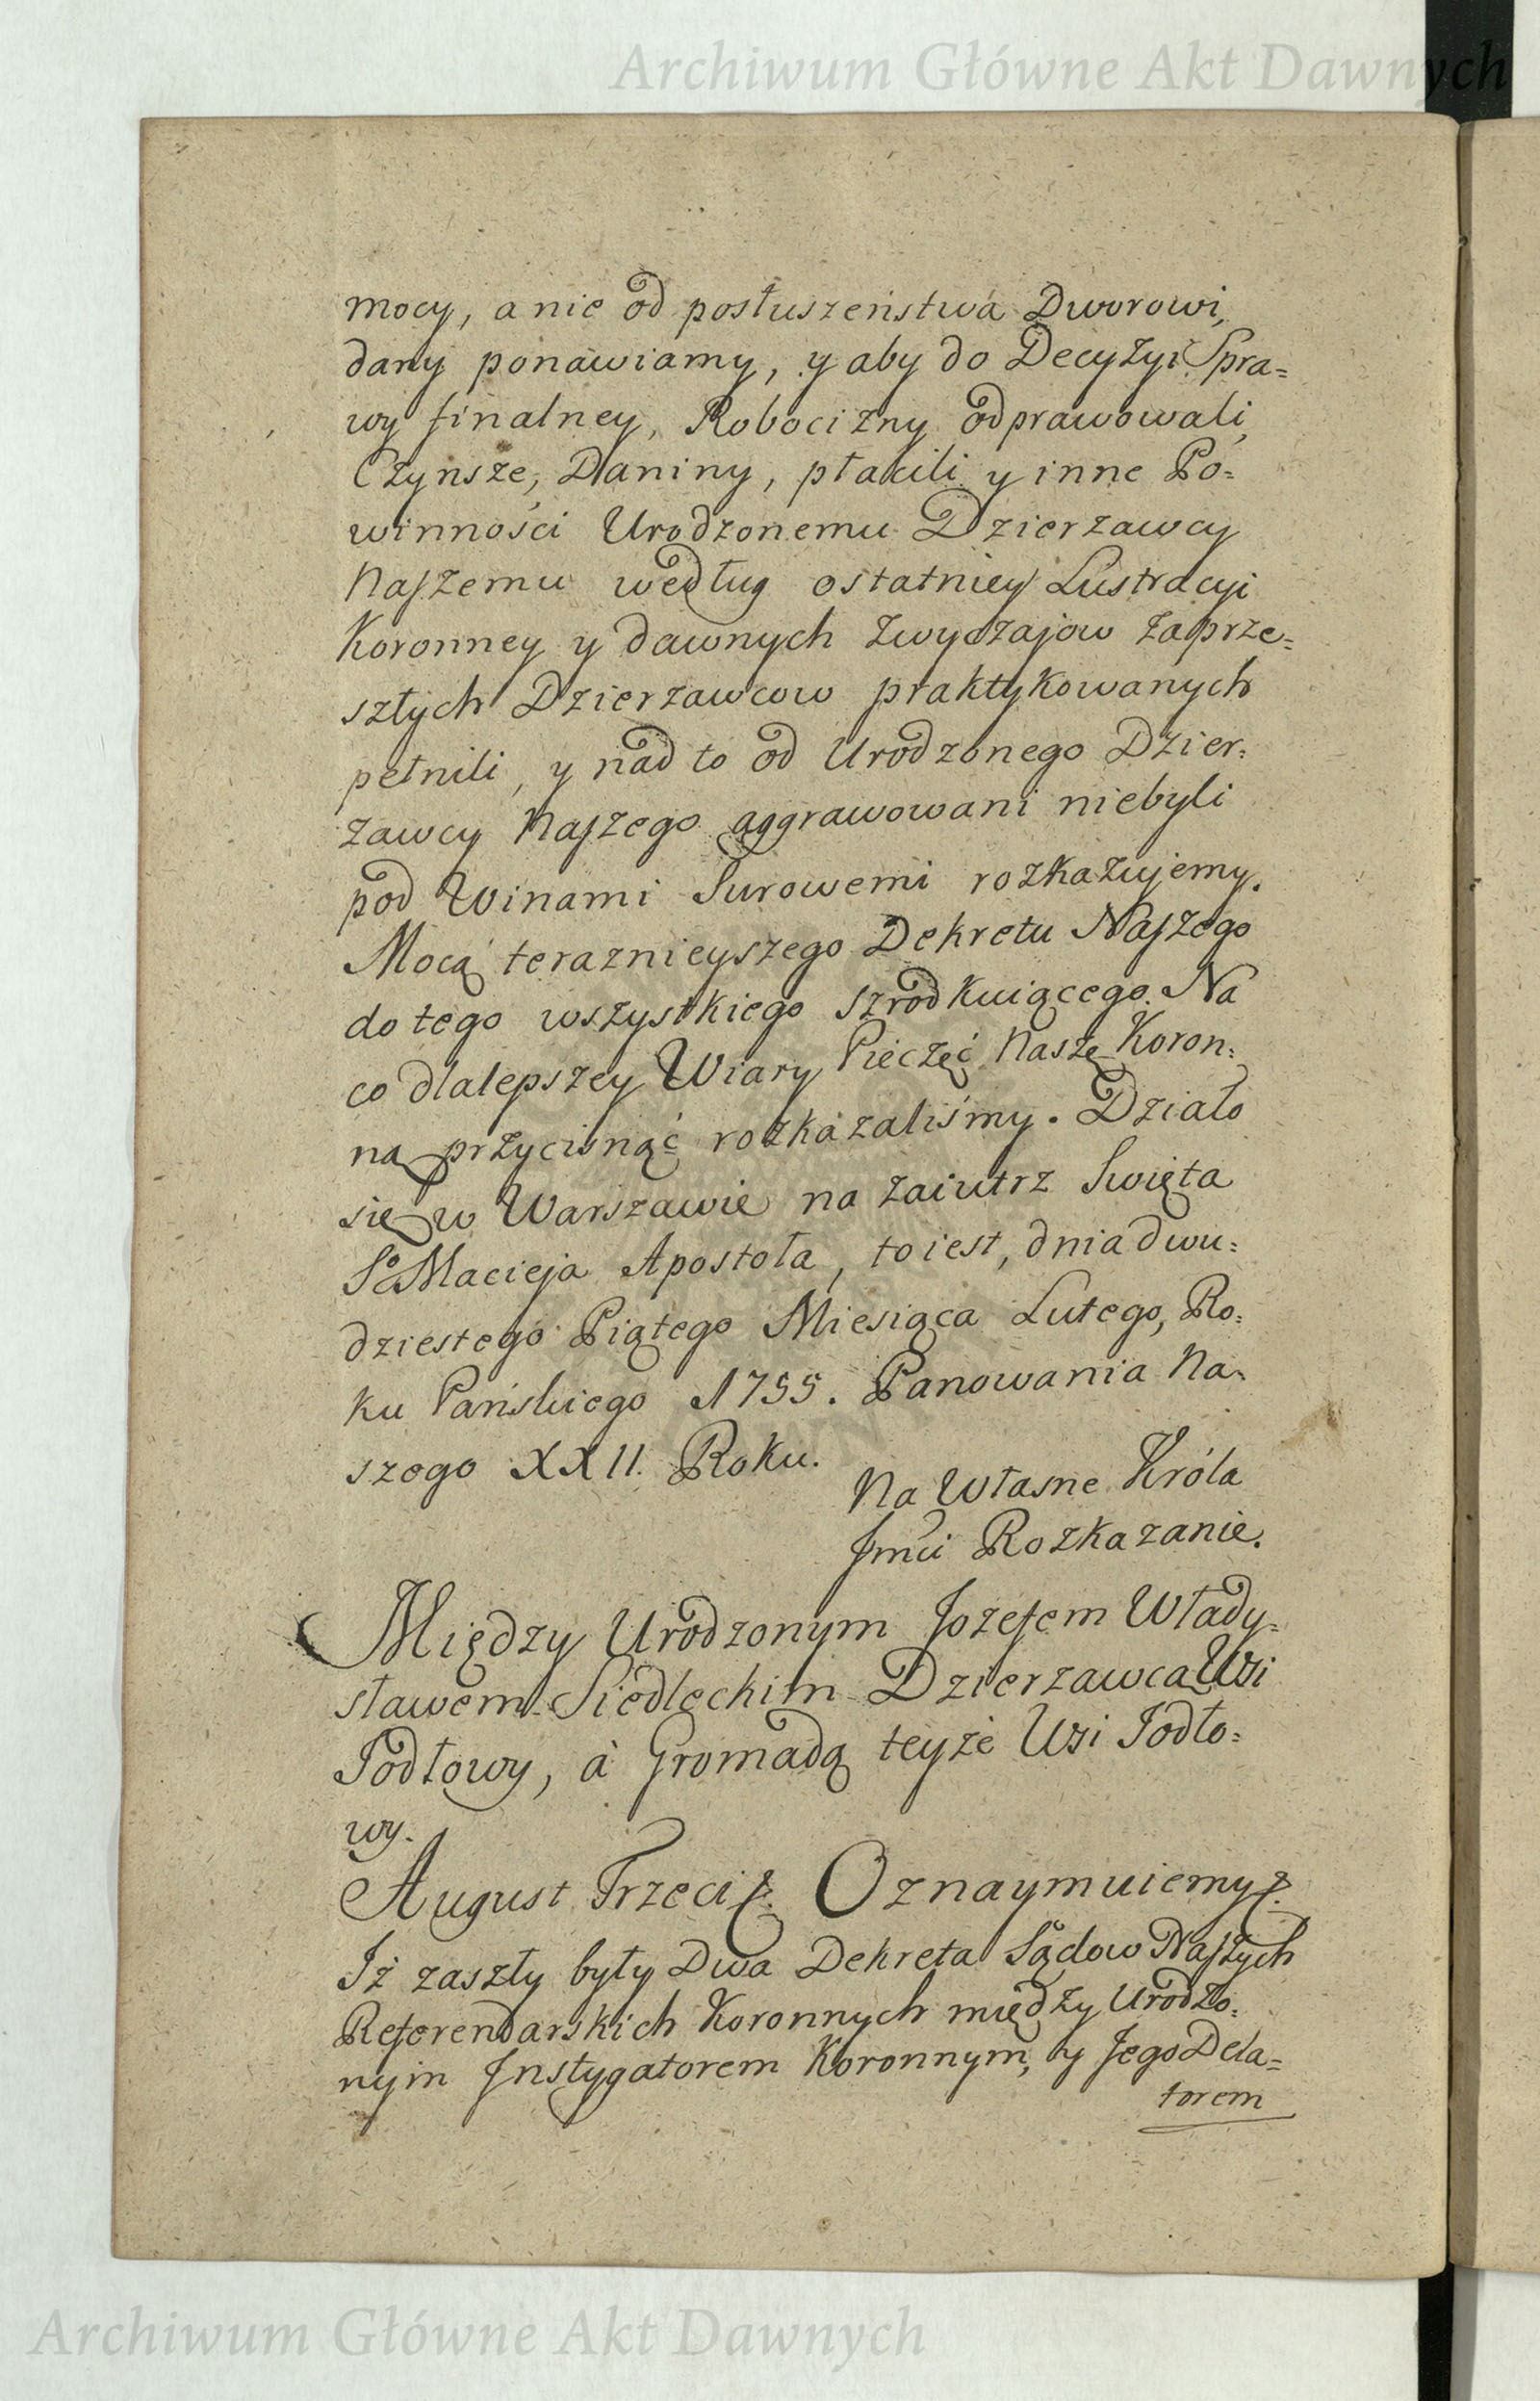 Archiwum Główne Akt Dawnych
mocy, a nie od posłuszeństwa Dworowi,
dany ponawiamy, y aby do Decyzyi Spra=
wy finalney, Robocizny odprawowali,
Czynsze, Daniny, płacili y inne Po=
winności Urodzonemu Dzierzawcy
Naszemu według ostatniey Lustracyi
Koronney y dawnych zwyczajow zaprze=
szłych Dzierzawcow praktykowanych
pełnili, y nad to od Urodzonego Dzier=
zawcy Naszego aggrawowani niebyli
pod Winami Surowemi rozkazujemy.
Mocą teraznieyszego Dekretu Naszego
do tego wszystkiego szrodkuiącego. Na
co dlalepszey Wiary Pieczęć Naszę Koron=
ną przycisnąć rozkazaliśmy. Działo
się w Warszawie na zaiutrz Swięta
So Macieja Apostoła, toiest, dnia dwu=
dziestego Piątego Miesiąca Lutego, Ro=
ku Pańskiego 1755. Panowania Na=
szego XXII. Roku.
Na Własne Króla
Jmci Rozkazanie.
Między Urodzonym Jozefem Włady=
sławem Siedleckim Dzierzawcą Wsi
Jodłowy, à Gromadą teyże Wsi Jodło=
wy.
August Trzeci &. Oznaymuiemy &.
Iż zaszły były Dwa Dekreta Sądow Naszych
Referendarskich Koronnych między Urodzo=
nym Instygatorem Koronnym, y Jego Dela=
torem
Archiwum Główne Akt Dawnych